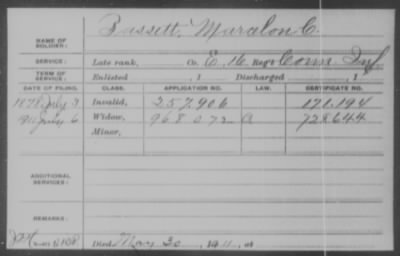 NAME OF SOLDIER: Bassett, Maralon C.
SERVICE: Late rank, Co. E, 16 Reg't Conn. Inf.
TERM OF SERVICE: Enlisted , 1 Discharged , 1
DATE OF FILING. CLASS. APPLICATION NO. LAW. CERTIFICATE NO.
1878 July 3 Invalid, 257.906 171.194
1911 July 6 Widow, 968 072 A 728.644
Minor,
ADDITIONAL SERVICES:
REMARKS:
Died May 30, 1911, at